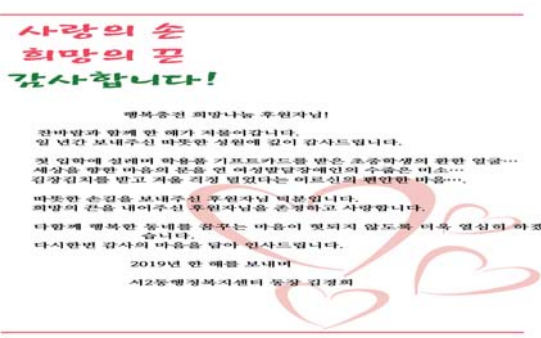 사랑의 손
희망의 끈
감사합니다!
행복충전 희망나눔 후원자님!
찬바람과 함께 한 해가 저물어갑니다.
일 년간 보내주신 따뜻한 성원에 깊이 감사드립니다.
첫 입학에 설레며 학용품 기프트카드를 받은 초중학생의 환한 얼굴…
세상을 향한 마음의 문을 연 여성발달장애인의 수줍은 미소…
김장김치를 받고 겨울 걱정 덜었다는 어르신의 편안한 마음…,
따뜻한 손길을 보내주신 후원자님 덕분입니다.
희망의 끈을 내어주신 후원자님을 존경하고 사랑합니다.
다함께 행복한 동네를 꿈꾸는 마음이 헛되지 않도록 더욱 열심히 하겠
습니다.
다시한번 감사의 마음을 담아 인사드립니다.
2019년 한 해를 보내며
서2동행정복지센터 동장 김정희